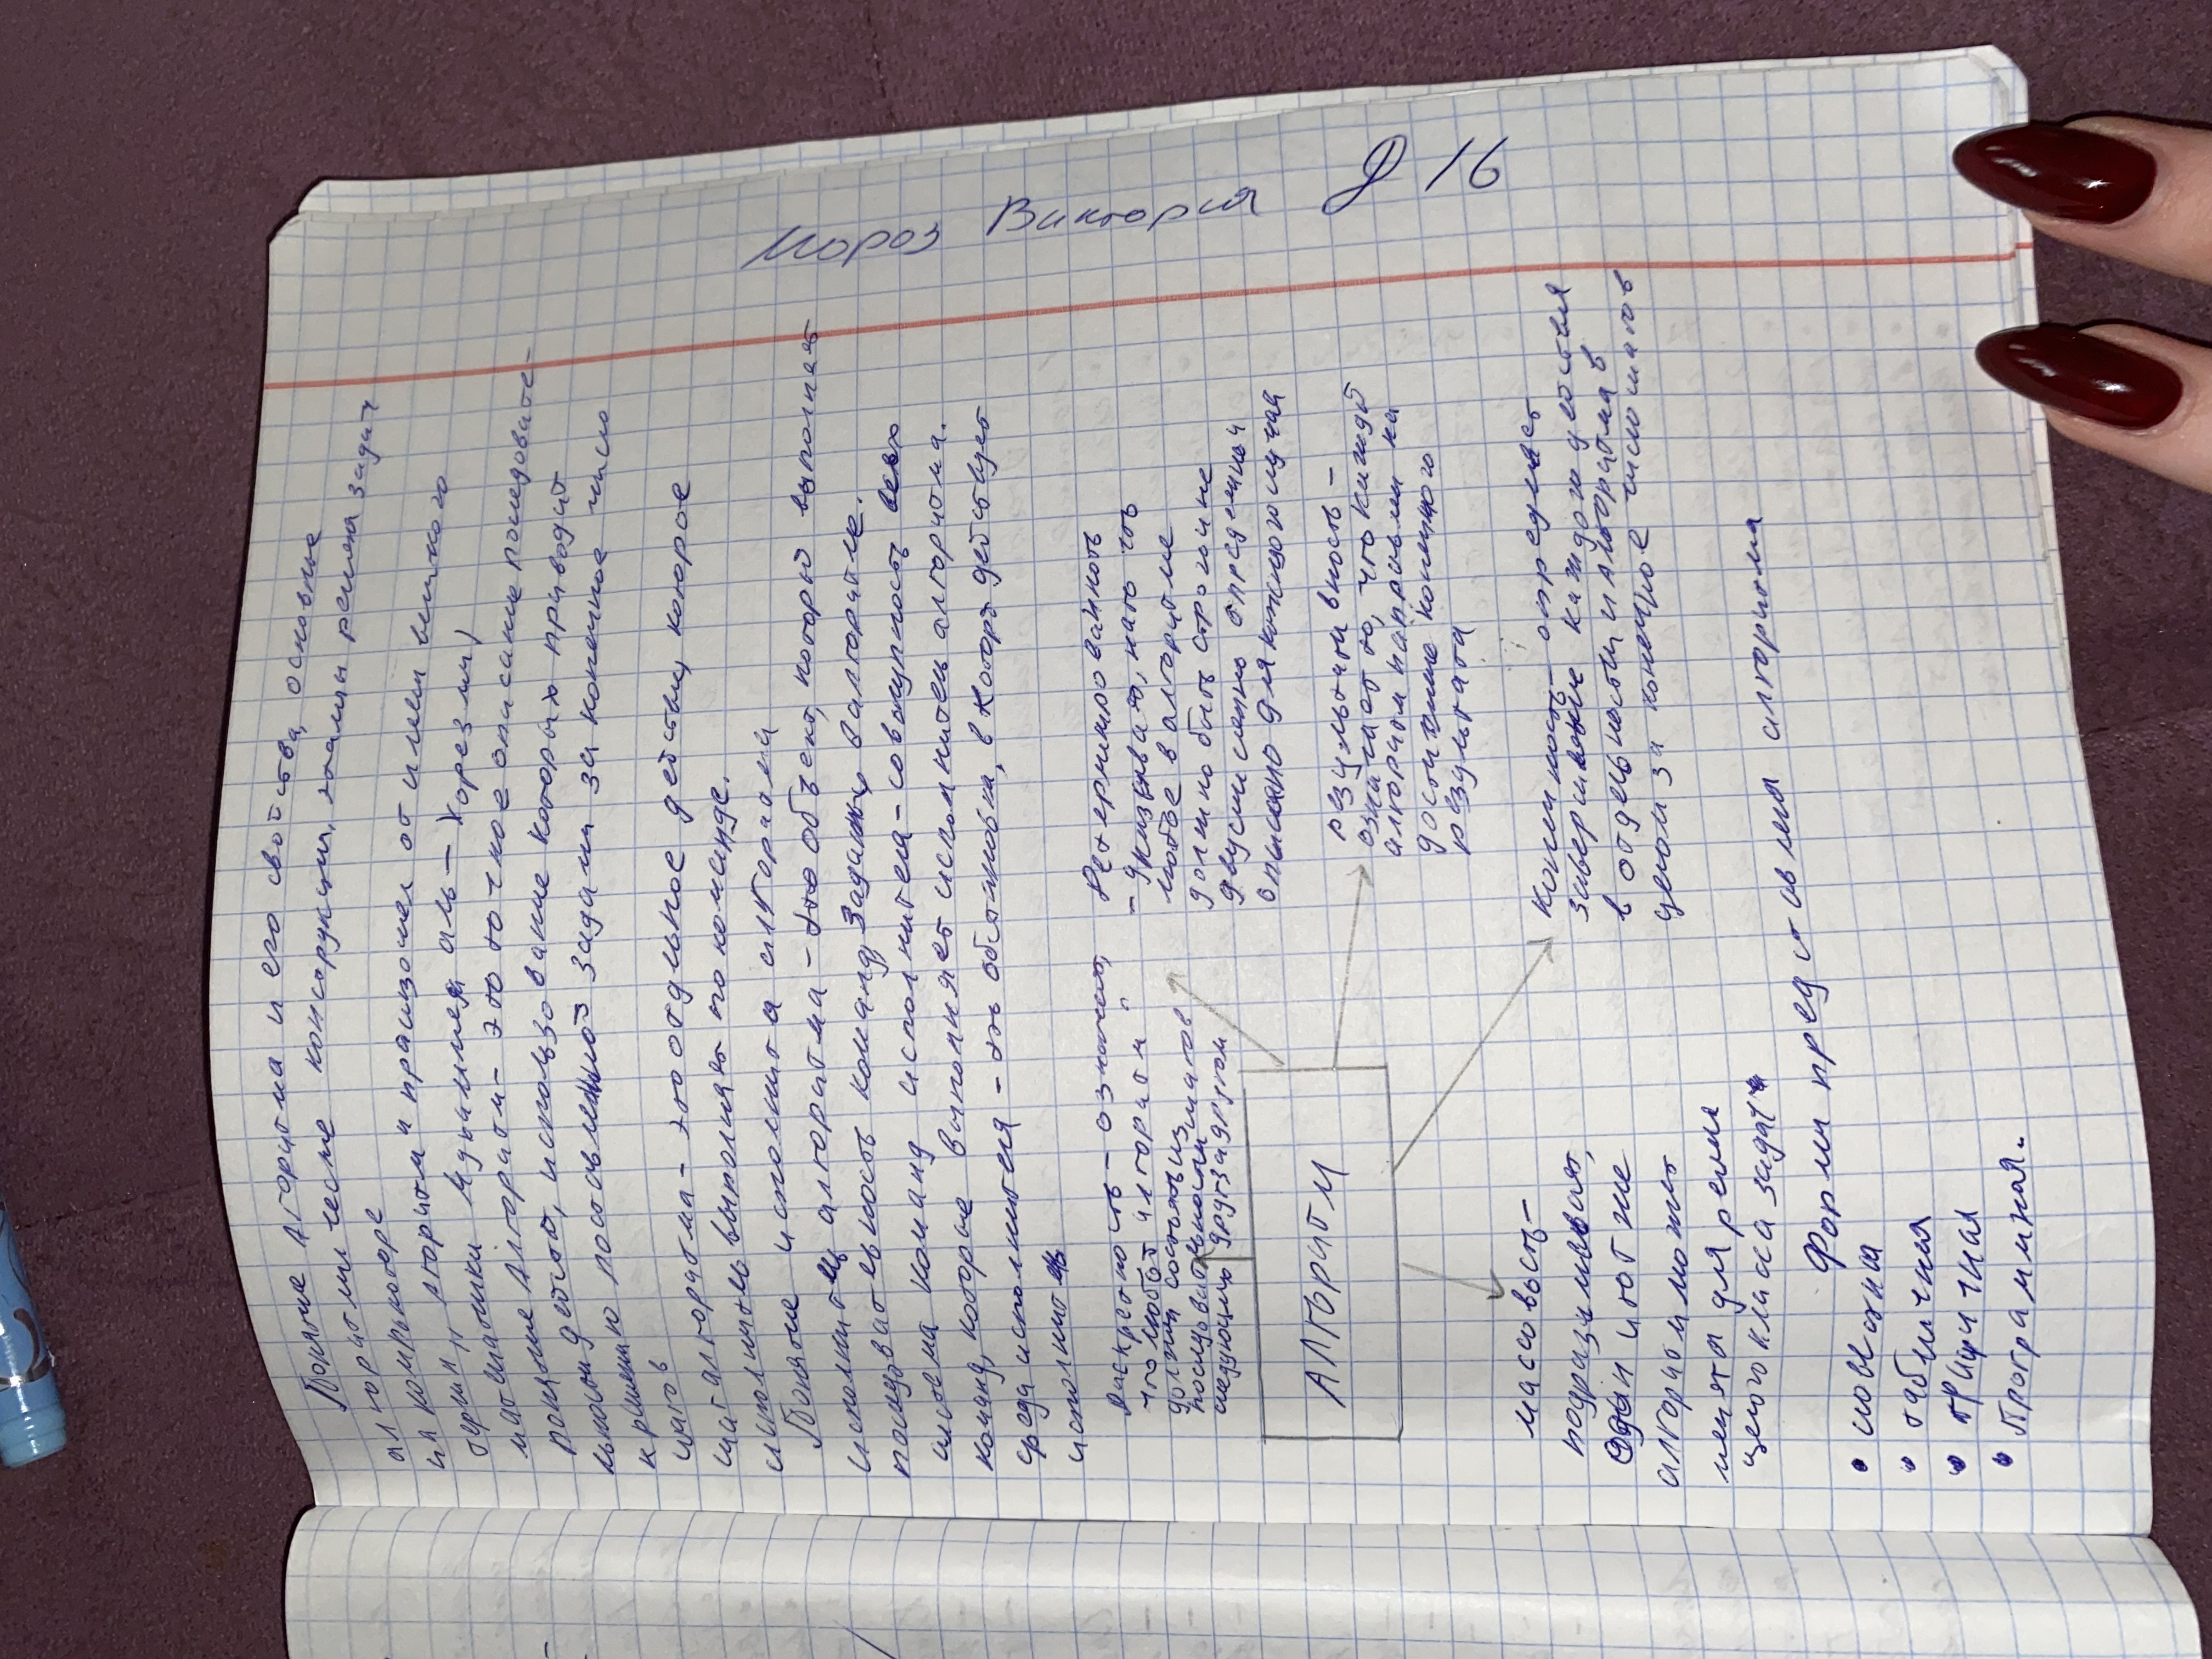 Мороз Виктория Д 16
Понятие Алгоритма и его свойства, основные
алгоритмические конструкции, этапы решения задач
на компьютере
термин алгоритм произошел от имени великого
математика Мухаммеда аль – Хорезми)
понятие Алгоритм – это точное описание последовате-
льности действ, использование которых приводит
к решению поставленной задачи за конечное число
шагов
шаг алгоритма – это отдельное действие, которое
исполнитель выполняет по команде.
Понятие исполнителя алгоритма
исполнитель алгоритма – это объект, который выполняет
последовательность команд заданную в алгоритме.
система команд исполнителя – совокупность всех
команд, которые выполняет исполнитель алгоритма.
среда исполнителя – это обстановка, в которой действует
исполнитель
Дискретность – означает,
что любой алгоритм
должен состоять из
последовательности шагов
следующих друг за другом
Детерминированность
– указывает, что
любое в алгоритме
должно быть строго и не
двусмысленно определено и
описано для каждого случая
АЛГОРИТМ
результативность –
означает то, что каждый
алгоритм направлен на
достижение конечного
результата
Конечность – определяет
завершение каждого действия
в отдельности и алгоритма в
целом за конечное число шагов
массовость –
подразумевает,
Один и тот же
алгоритм может
для реш
целого класса задач
Формы представления алгоритма
• словесная
• табличная
•
• Программная.